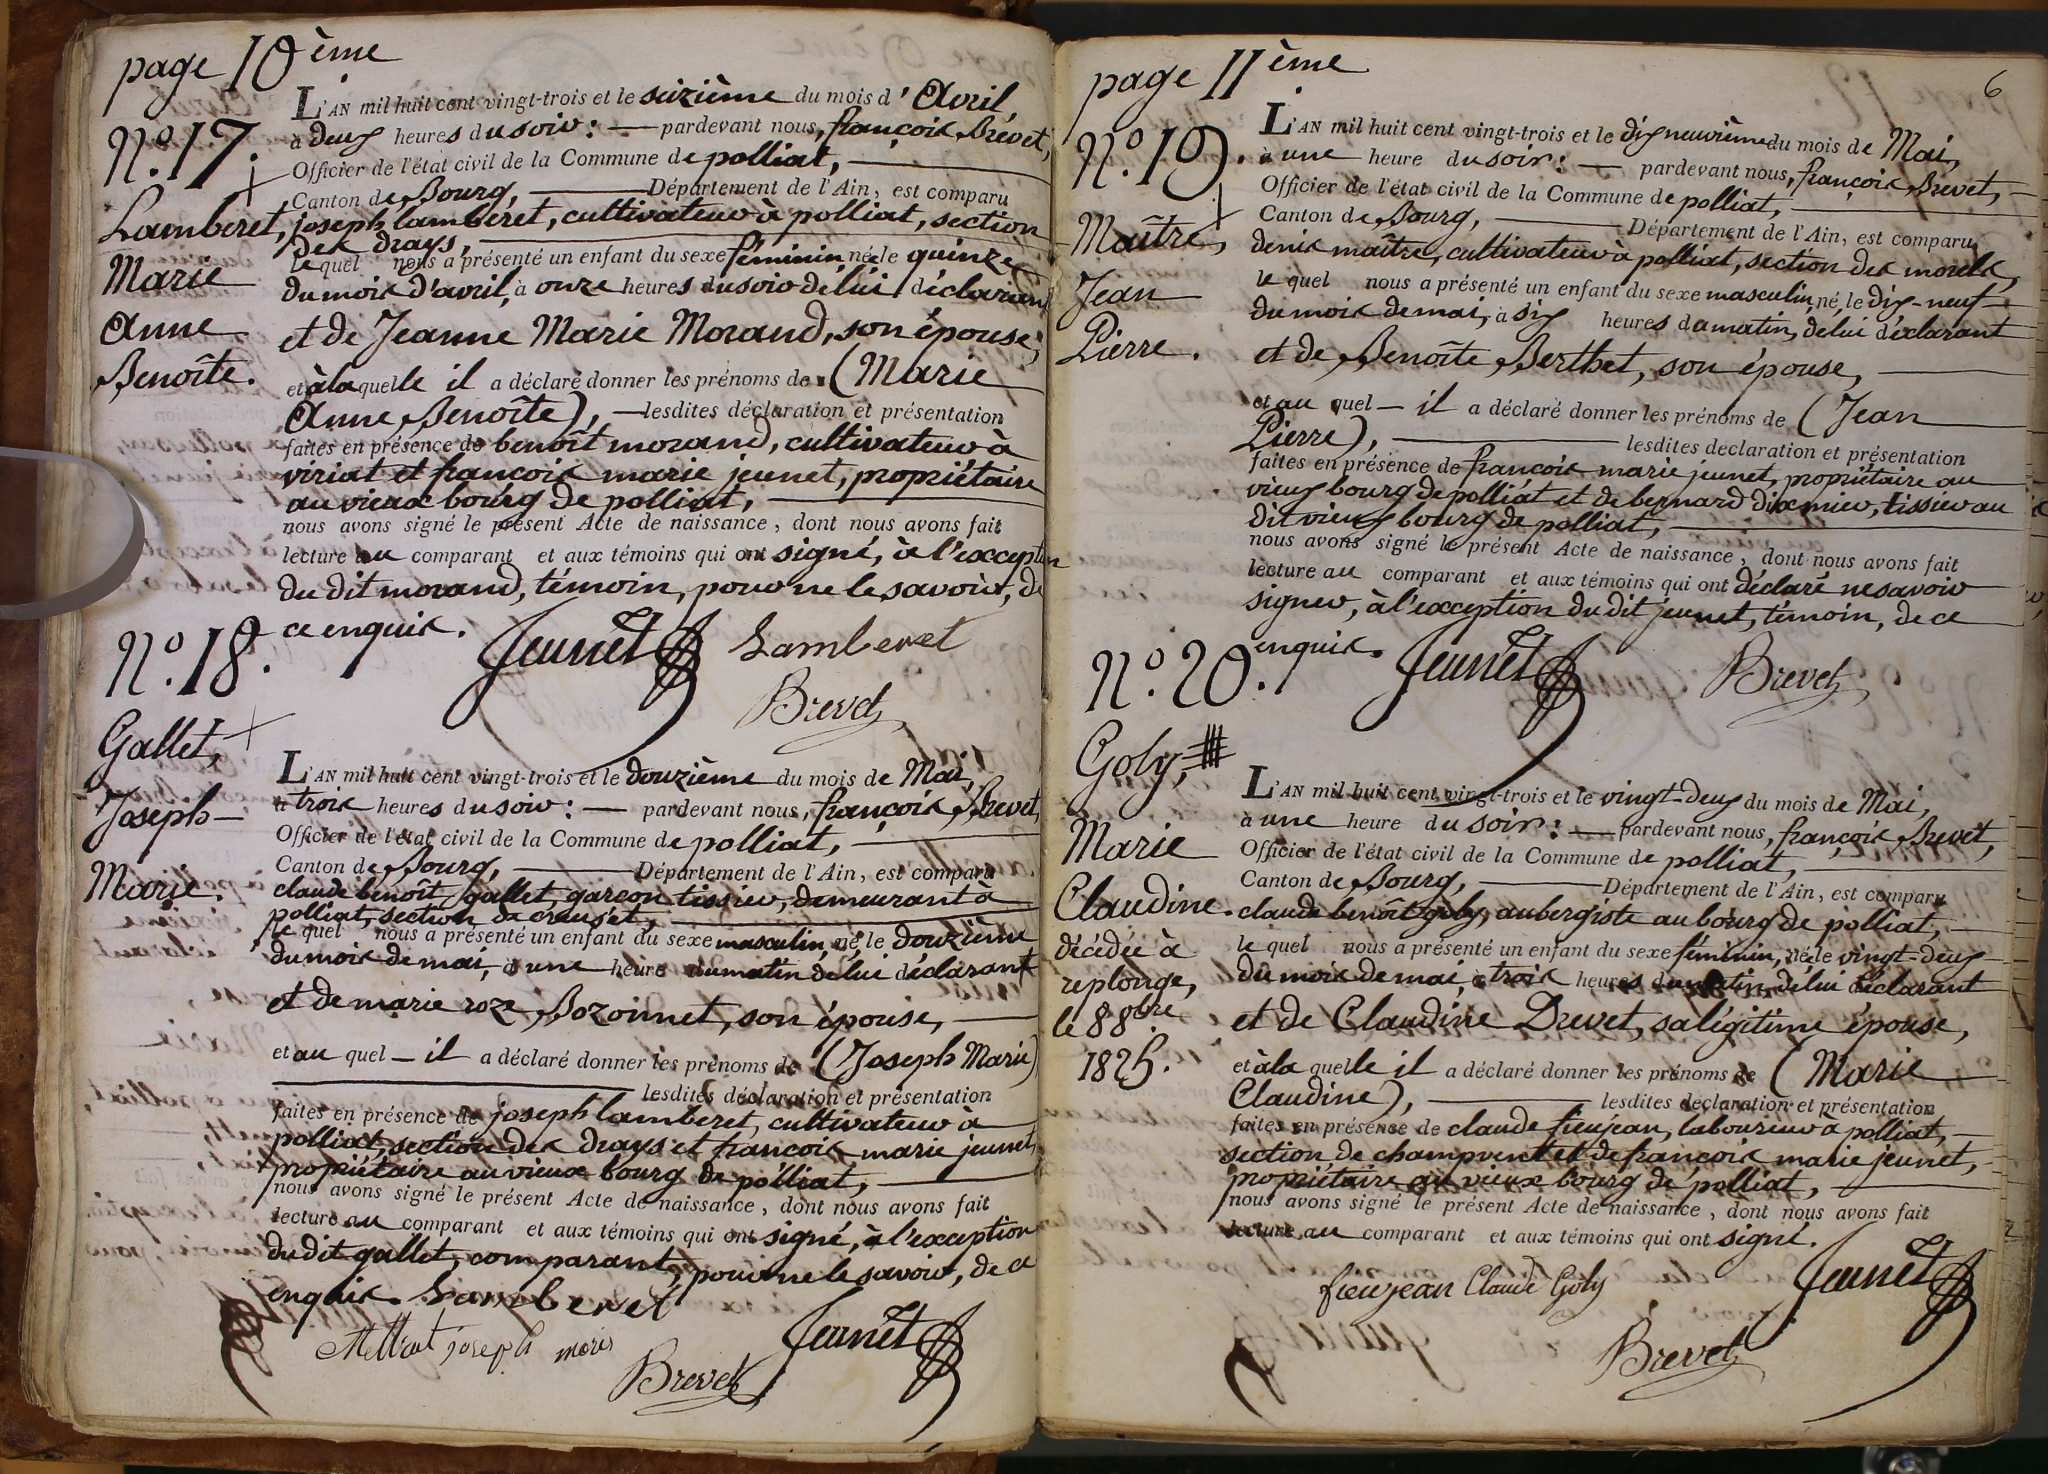 page 10ème
N.º 17.
Lamberet,
Marie
Anne
Benoîte.
L'AN mil huit cent vingt-trois et le seizième du mois d'Avril
à deux heures du soir : — pardevant nous, françois Brevet,
Officier de l'état civil de la Commune de polliat, —
Canton de Bourg, — Département de l'Ain, est comparu
joseph lamberet, cultivateur à polliat, section
des drays, —
le quel nous a présenté un enfant du sexe féminin, née le quinze
du mois d'avril, à onze heures du soir de lui déclarant
et de Jeanne Marie Morand, son épouse,
et à la quelle il a déclaré donner les prénoms de (Marie
Anne Benoîte), — lesdites déclaration et présentation
faites en présence de benoît morand, cultivateur à
viriat et françois marie jeunet, propriétaire
au vieux bourg de polliat, —
nous avons signé le présent Acte de naissance, dont nous avons fait
lecture au comparant et aux témoins qui ont signé, à l'exception
du dit morand, témoin, pour ne le savoir, de
ce enquis.
Jeunet Lamberet
Brevet
N.º 18.
Gallet,
Joseph —
Marie.
L'AN mil huit cent vingt-trois et le douzième du mois de Mai,
à trois heures du soir : — pardevant nous, françois Brevet,
Officier de l'état civil de la Commune de polliat, —
Canton de Bourg, — Département de l'Ain, est comparu
claude benoît gallet, garçon tissier, demeurant à
polliat, section de creuset, —
le quel nous a présenté un enfant du sexe masculin, né, le douzième
du mois de mai, à une heure du matin de lui déclarant
et de marie roze Bozonnet, son épouse, —
et au quel — il a déclaré donner les prénoms de (Joseph Marie)
— lesdites déclaration et présentation
faites en présence de joseph lamberet, cultivateur à
polliat, section des drays et françois marie jeunet,
propriétaire au vieux bourg de polliat, —
nous avons signé le présent Acte de naissance, dont nous avons fait
lecture au comparant et aux témoins qui ont signé, à l'exception
du dit gallet, comparant, pour ne le savoir, de ce
enquis. Lamberet
joseph Jeunet
Brevet
page 11ème
6
N.º 19.
Maître,
Jean
Pierre.
L'AN mil huit cent vingt-trois et le dix neuvième du mois de Mai,
à une heure du soir : — pardevant nous, françois Brevet, —
Officier de l'état civil de la Commune de polliat, —
Canton de Bourg, — Département de l'Ain, est comparu
denis maître, cultivateur à polliat, section des morels,
le quel nous a présenté un enfant du sexe masculin, né, le dix-neuf
du mois de mai, à six heures du matin, de lui déclarant
et de Benoîte Berthet, son épouse, —
et au quel — il a déclaré donner les prénoms de (Jean
Pierre), — lesdites déclaration et présentation
faites en présence de françois marie jeunet, propriétaire au
vieux bourg de polliat et de bernard dixmier, tissier au
dit vieux bourg de polliat, —
nous avons signé le présent Acte de naissance, dont nous avons fait
lecture au comparant et aux témoins qui ont déclaré ne savoir
signer, à l'exception du dit jeunet, témoin, de ce
enquis.
Jeunet Brevet
N.º 20.
Goby,
Marie
Claudine.
décédée à
replonge,
le 8 8bre
1825.
L'AN mil huit cent vingt-trois et le vingt-deux du mois de Mai,
à une heure du soir : — pardevant nous, françois Brevet,
Officier de l'état civil de la Commune de polliat, —
Canton de Bourg, — Département de l'Ain, est comparu
claude benoît goby, aubergiste au bourg de polliat, —
le quel nous a présenté un enfant du sexe féminin, née le vingt-deux
du mois de mai, à trois heures du matin, de lui déclarant
et de Claudine Drevet, sa légitime épouse,
et à la quelle il a déclaré donner les prénoms de (Marie
Claudine), — lesdites déclaration et présentation
faites en présence de claude fieujean, laboureur à polliat, —
section de champvent et de françois marie jeunet, —
propriétaire au vieux bourg de polliat, —
nous avons signé le présent Acte de naissance, dont nous avons fait
lecture au comparant et aux témoins qui ont signé.
fieujean Claude Goby Jeunet
Brevet